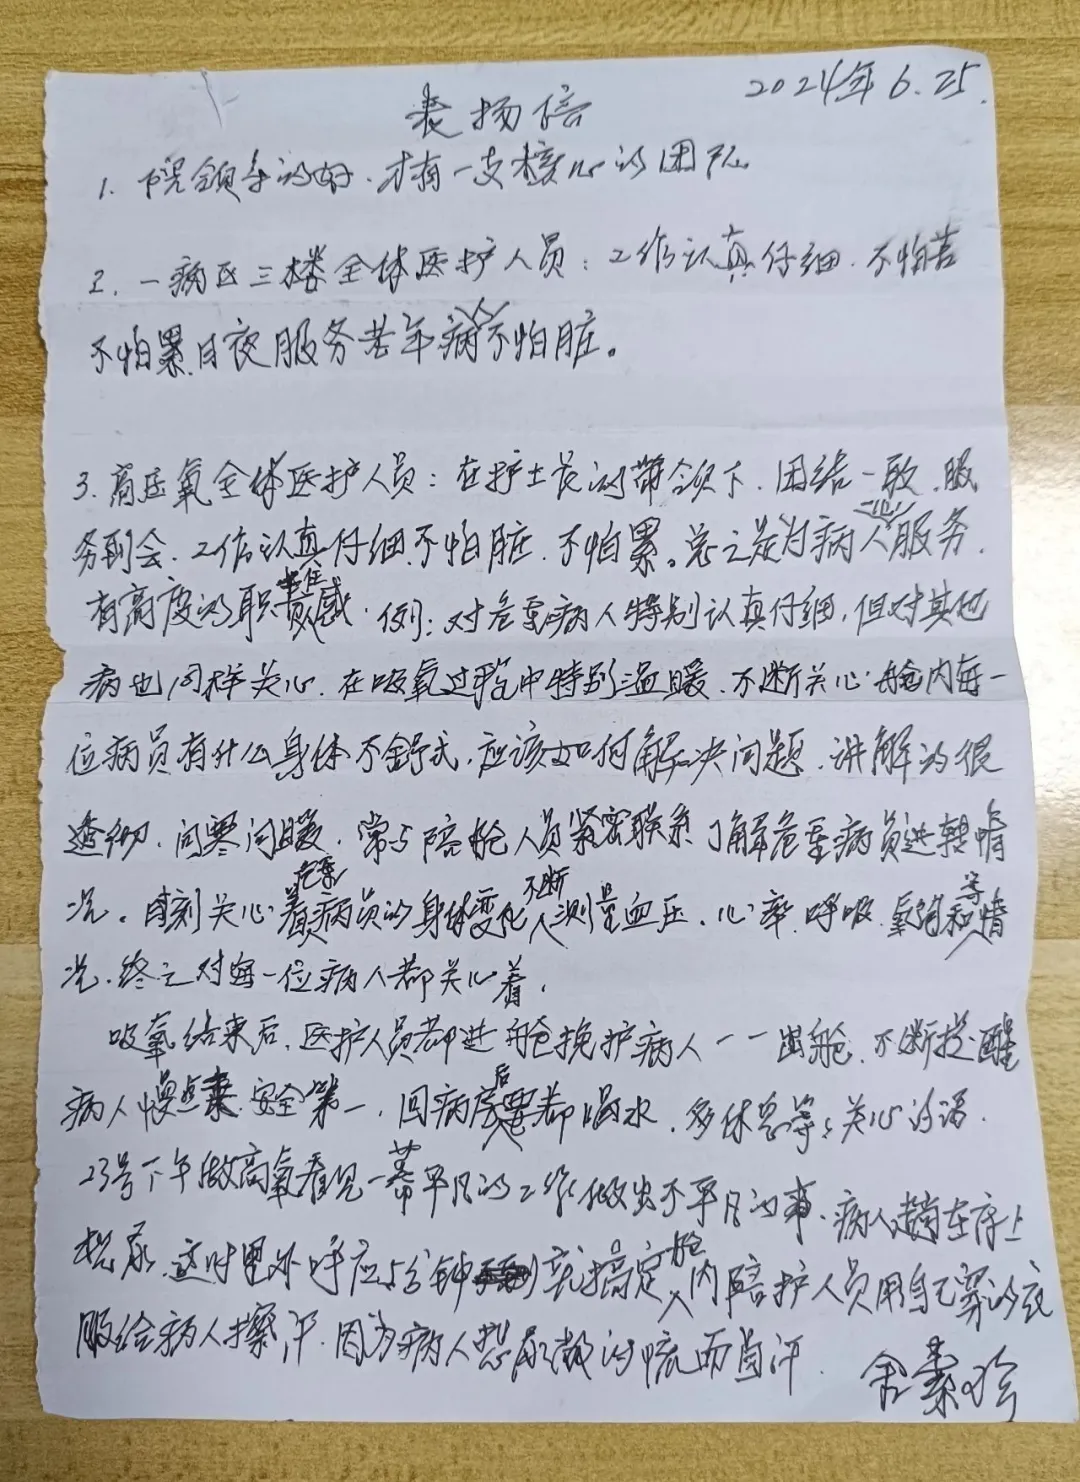 2024年6.25.
表扬信
1. 院领导的好、才有一支核心的团队
2. 一病区三楼全体医护人员：工作认真仔细、不怕苦
不怕累日夜服务老年病人不怕脏。
3. 高压氧全体医护人员：在护士长的带领下、团结一致、服
务到会、工作认真仔细不怕脏、不怕累。总之是为病人服务、
有高度的职责感、例：对危重病人特别认真仔细，但对其他
病也同样关心、在吸氧过程中特别温暖、不断关心舱内每一
位病员有什么身体不舒式，应该如何解决问题、讲解的很
透彻、问寒问暖、常与陪舱人员紧密联系了解危重病员进转情
况。时刻关心着危重病员的身体变化不断测量血压、心率、呼吸、氧饱和等情
况、终之对每一位病人都关心着、
吸氧结束后、医护人员都进舱挽护病人一一出舱、不断提醒
病人慢点来、安全第一，回病房后要都喝水、多休息等等关心的话、
23号下午做高氧看见一幕平凡的工作做出不平凡的事、病人躺在床上
想尿、这时里外呼应5分钟就搞定、舱内陪护人员用自己穿的衣
服给病人擦汗、因为病人想尿 的慌而冒汗、